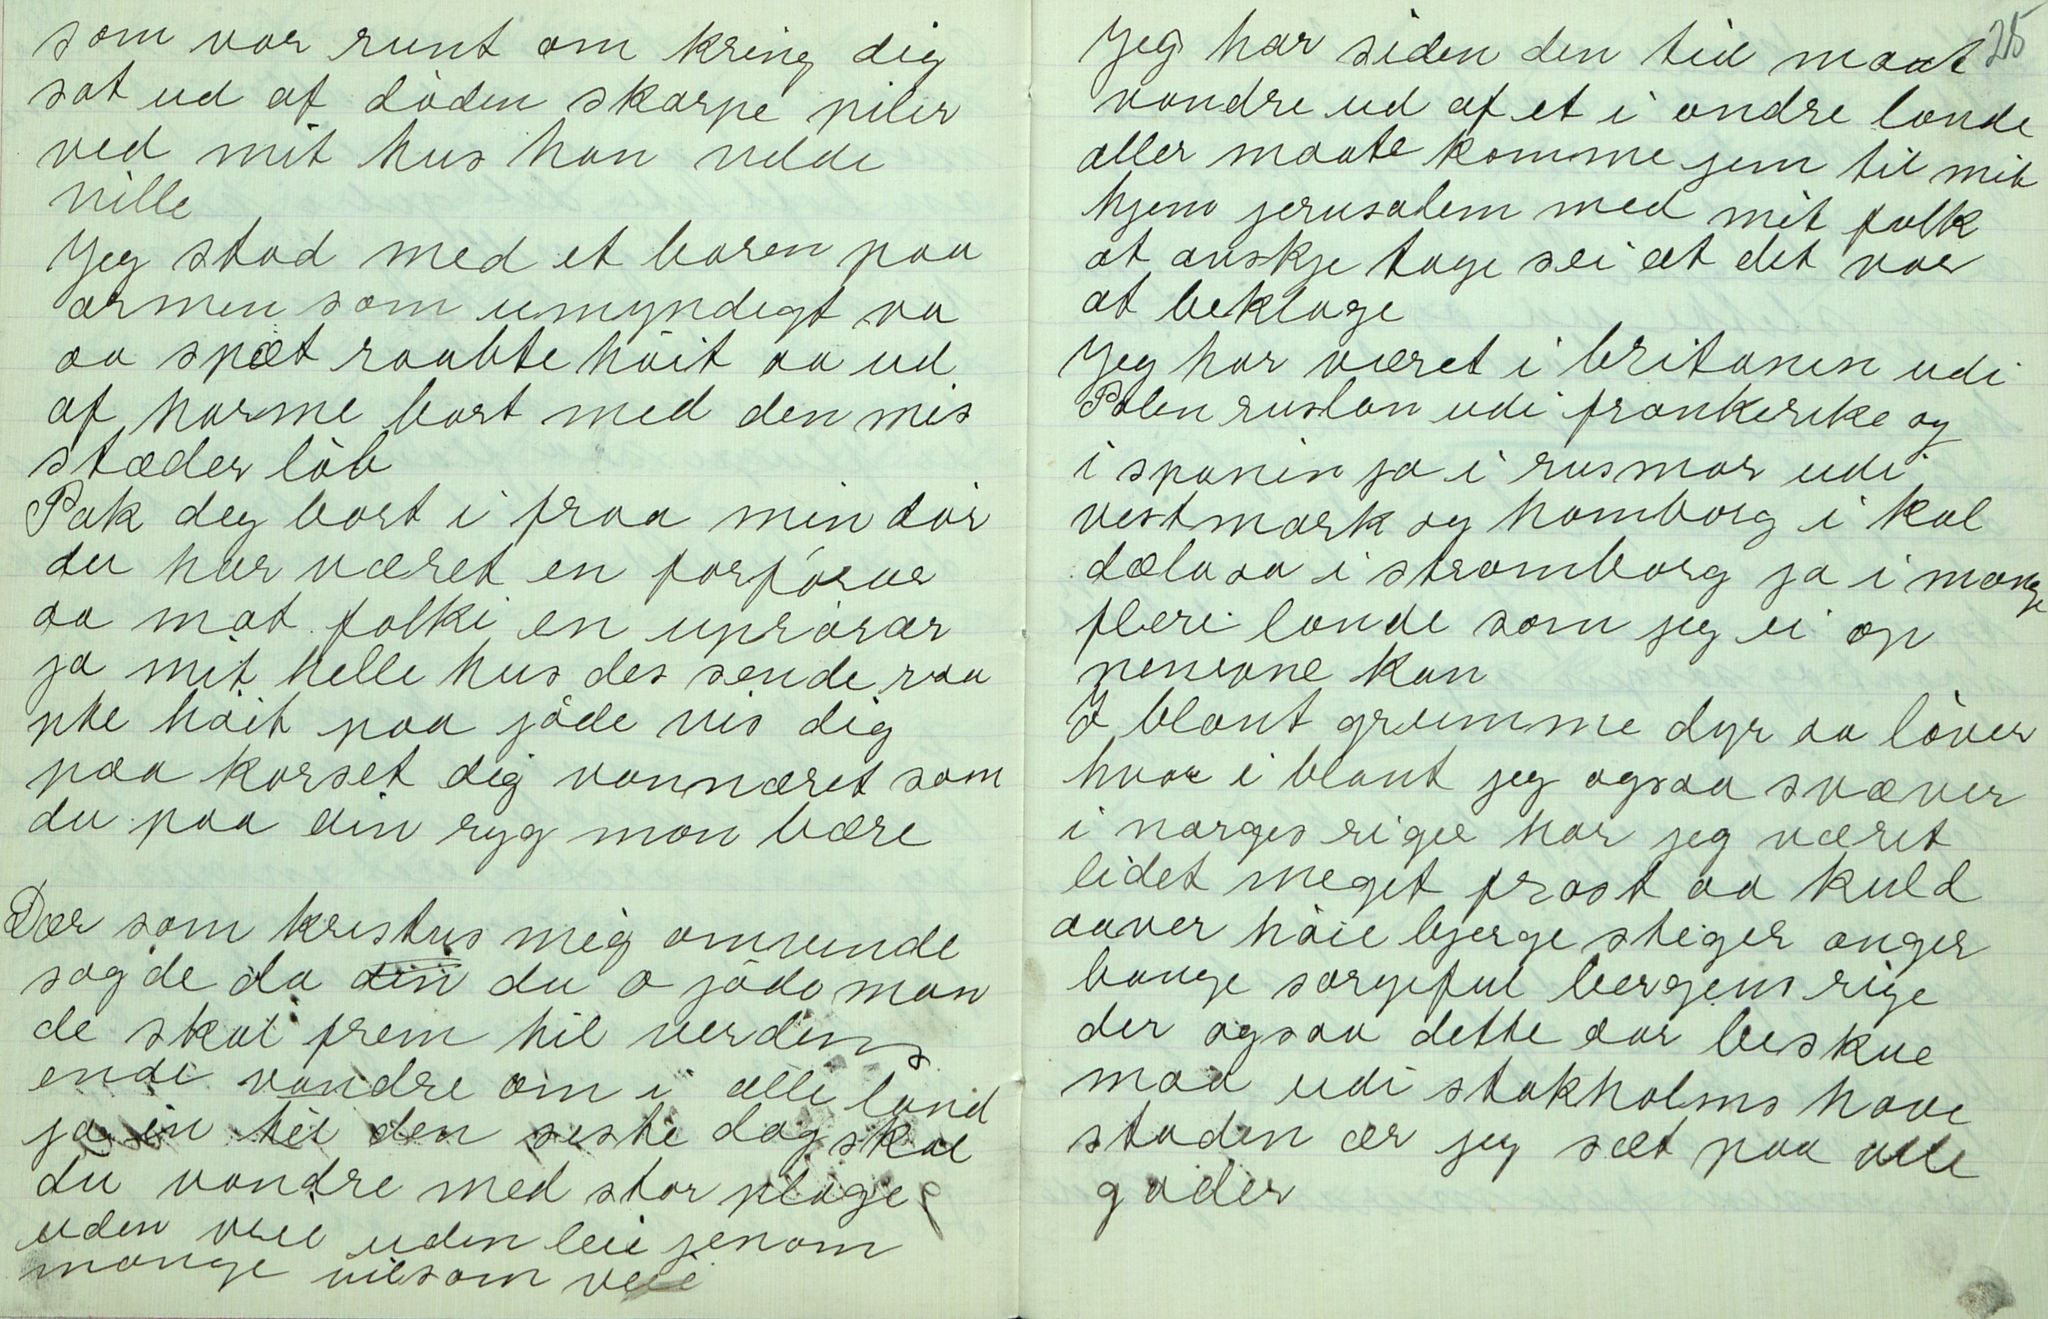 som var runt om kring dig
sat ud af döden skarpe piler
ved mit hus han velde
ville
Jeg stod med et baren paa
armen som umyndigt va
aa spæt raabte höit aa ud
af harme bort med den mis
stæder löb
Pak deg bort i fraa min dör
du har været en forförar
aa mot folki en uprörær
ja mit helle hus des sende raa
pte höit paa jöde vis dig
paa korset dig vannæret som
du paa din ryg mon bære
Dær som kristus mig omvende
sagde da du o jöde man
de skal frem hil verdens
ende vandre om i alle land
ja in til den seste dag skal
du vandre med stor plage
uden veie uden leie jenom
mange vilsom veie
25
Jeg har siden den tid maat
vandre ud af et i andre lande
aller maate komme jem til mit
hjem jerusalem med mit folk
at anskje tage sei at det var
at beklage
Jeg har været i britanin udi
Polen ruslan udi frankerike og
i spanin ja i rusmar udi
vestmark og hamborg i kal
dæla aa i stramborg ja i mange
flere lande som jeg ei op
nenvne kan
I blant grumme dyr aa löver
hvor i blant jeg ogsaa svæver
i norges rige har jeg været
lidet meget frost aa kuld
aaver höie bjerge stiger anger
bange sorgeful bergens rige
der ogsaa dette aar beskue
maa udi stokholms hove
staden ær jeg sæt paa alle
gader